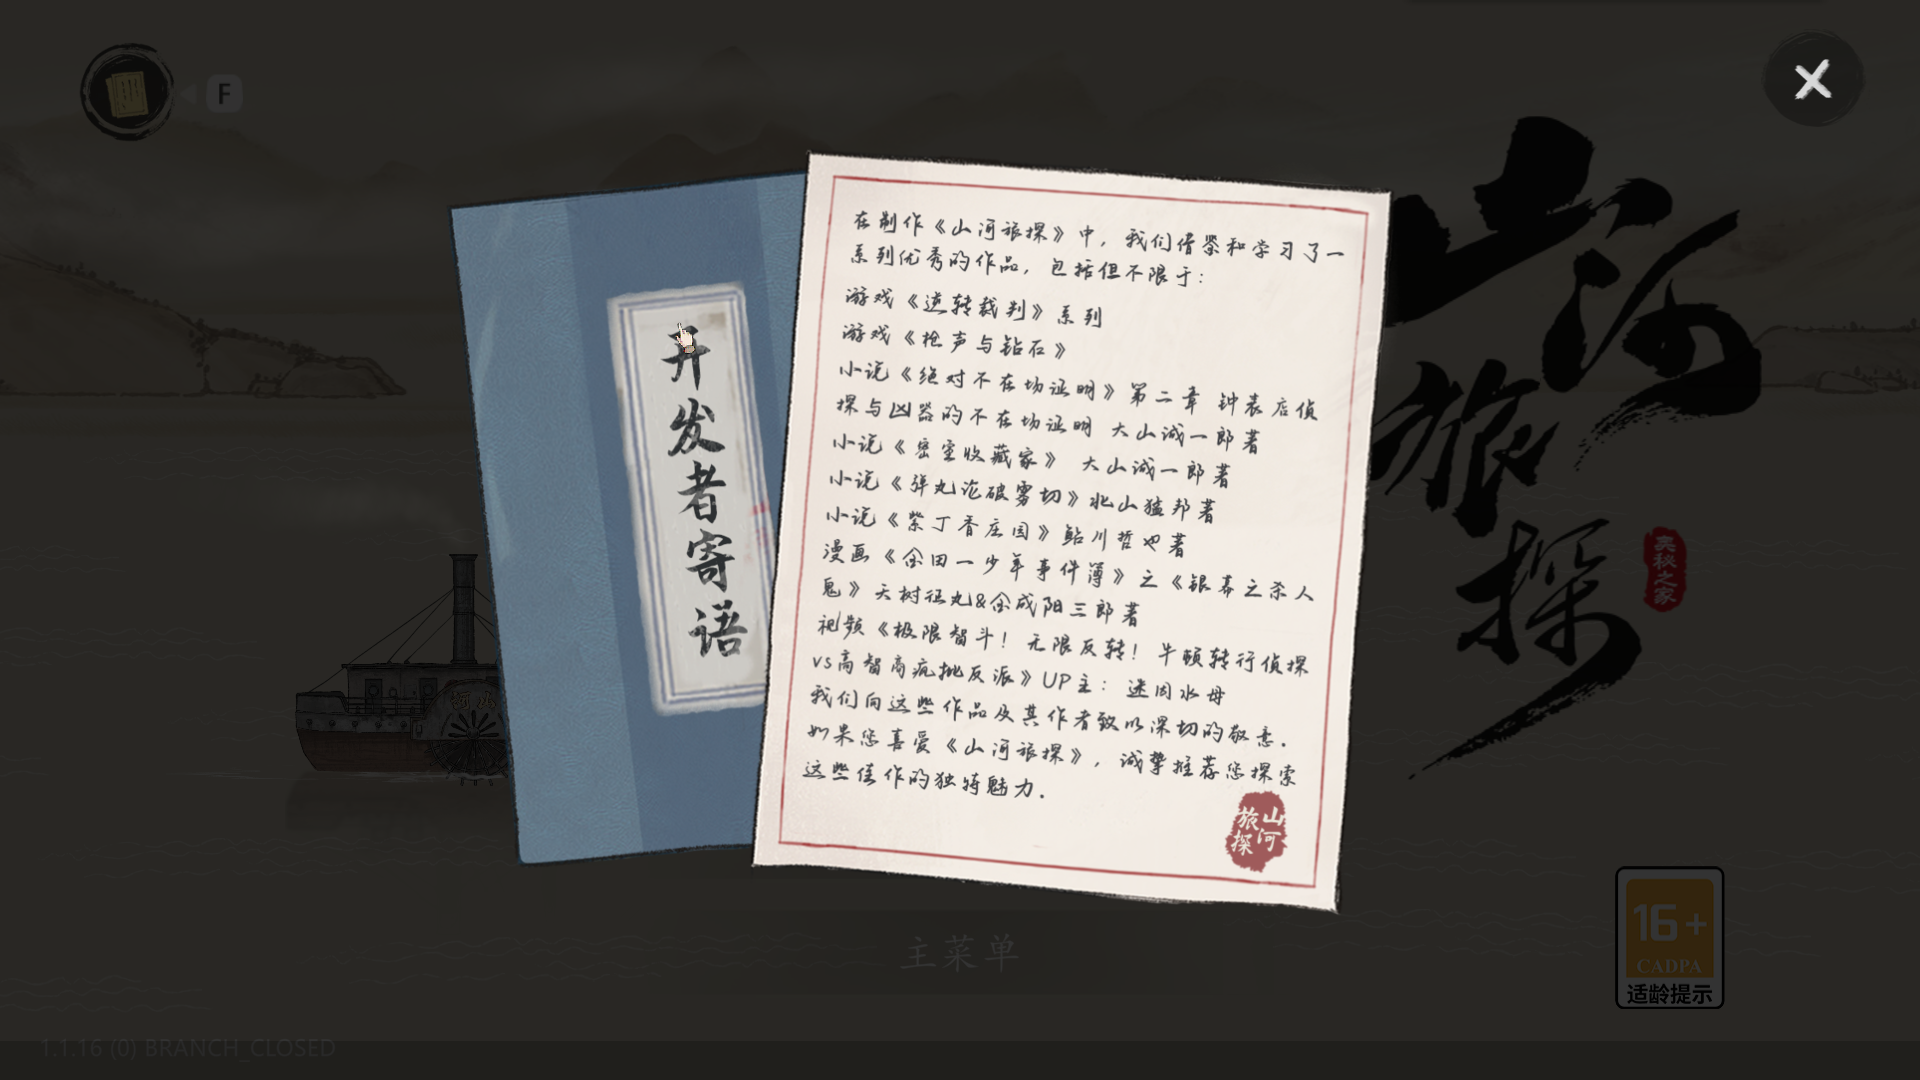 F
开发者寄语
在制作《山河旅探》中，我们借鉴和学习了一
系列优秀的作品，包括但不限于：
游戏《逆转裁判》系列
游戏《枪声与钻石》
小说《绝对不在场证明》第二章 钟表店侦
探与凶器的不在场证明 大山诚一郎著
小说《密室收藏家》 大山诚一郎著
小说《弹丸论破雾切》北山猛邦著
小说《紫丁香庄园》鲇川哲也著
漫画《金田一少年事件簿》之《银幕之杀人
鬼》天树征丸&金成阳三郎著
视频《极限智斗！无限反转！牛顿转行侦探
vs高智商疯批反派》UP主：迷因水母
我们向这些作品及其作者致以深切的敬意.
如果您喜爱《山河旅探》，诚挚推荐您探索
这些佳作的独特魅力.
山河旅探
山河旅探
奥秘之家
山河
主菜单
16+
CADPA
适龄提示
1.1.16 (0) BRANCH_CLOSED